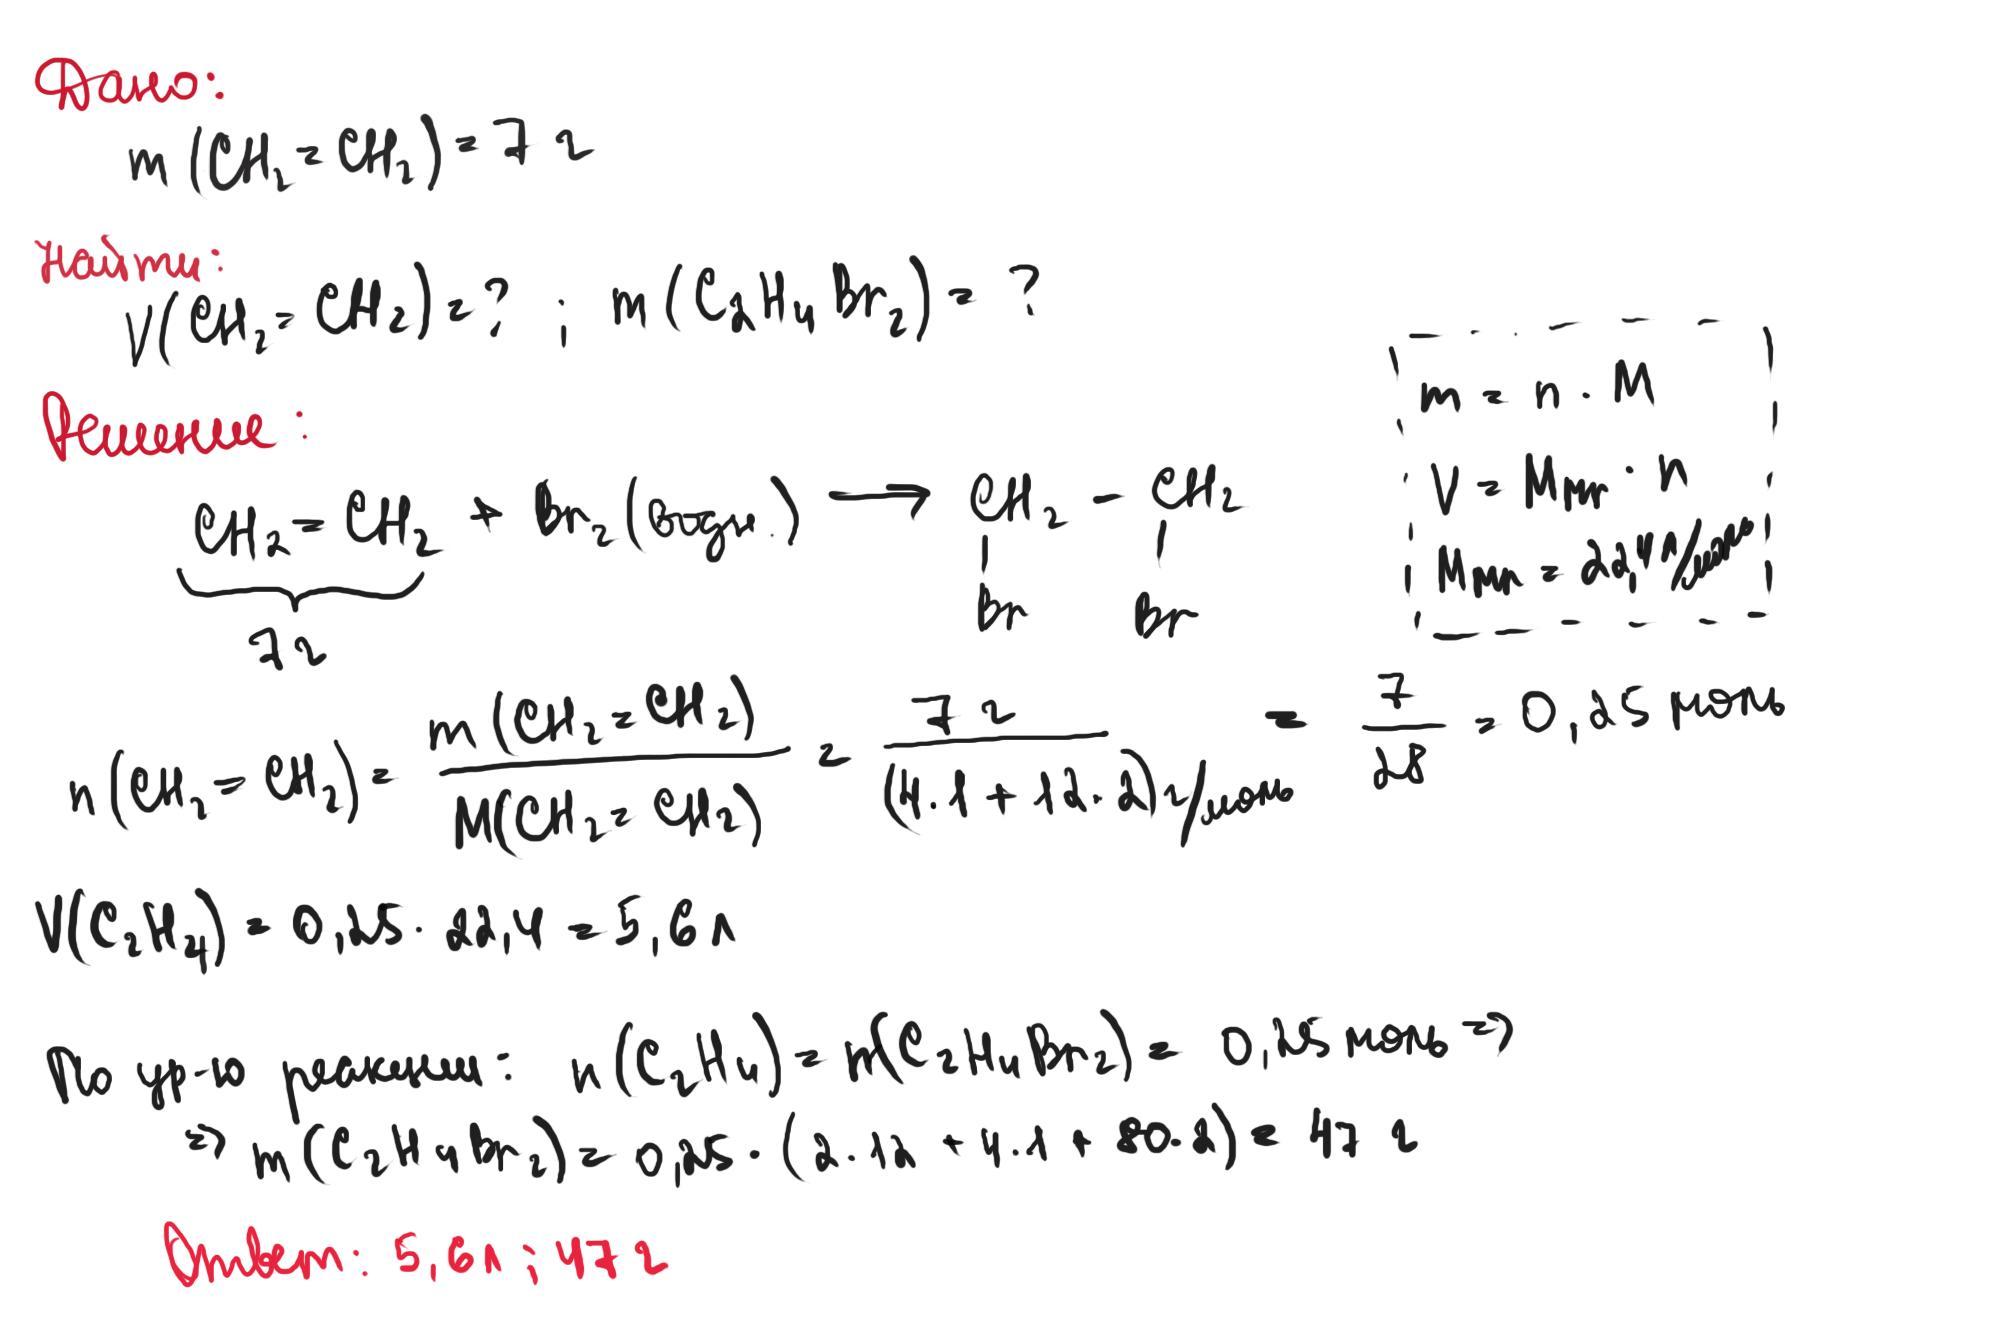 Дано:
m (CH₂ = CH₂) = 7 г
Найти:
V(CH₂ = CH₂) = ? ; m (C₂H₄Br₂) = ?
Решение:
m = n · M
V = Mмг · n
Mмг = 22,4 л/моль
CH₂ = CH₂ + Br₂ (водн.) → CH₂ – CH₂
Br Br
7 г
n(CH₂ = CH₂) = m (CH₂ = CH₂) / M(CH₂ = CH₂) = 7 г / (4·1 + 12·2) г/моль = 7/28 = 0,25 моль
V(C₂H₄) = 0,25 · 22,4 = 5,6 л
По ур-ю реакции: n(C₂H₄) = n(C₂H₄Br₂) = 0,25 моль =>
=> m (C₂H₄Br₂) = 0,25 · (2·12 + 4·1 + 80·2) = 47 г
Ответ: 5,6 л ; 47 г